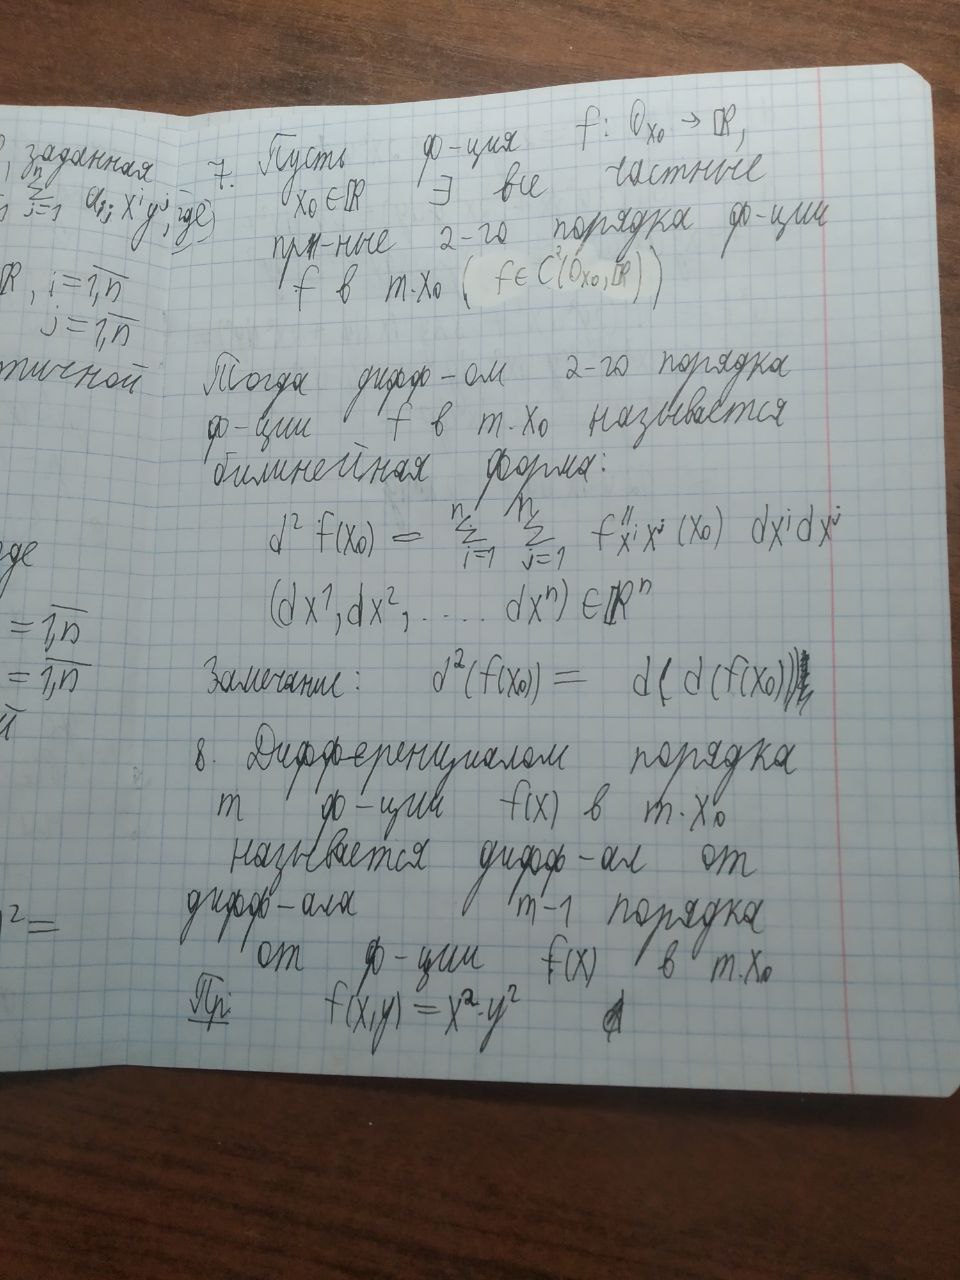 , заданная
Σ n j=1 aij x^i y^j, где
R, i = 1,n
j = 1,n
тичной
где
= 1,n
= 1,n
й
)² =
7. Пусть ф-ция f: Ox₀ → R,
x₀ ∈ R ∃ все частные
пр-ные 2-го порядка ф-ции
f в т. x₀ ( f ∈ C²(Ox₀, R) )
Тогда дифф-ом 2-го порядка
ф-ции f в т. x₀ называется
билинейная форма:
d² f(x₀) = Σ n i=1 Σ n j=1 f''x^i x^j (x₀) dx^i dx^j
(dx¹, dx², .... dxⁿ) ∈ Rⁿ
Замечание: d²(f(x₀)) = d( d(f(x₀)))
8. Дифференциалом порядка
m ф-ции f(x) в т. x₀
называется дифф-ал от
дифф-ала m-1 порядка
от ф-ции f(x) в т. x₀
Пр: f(x,y) = x² · y² d